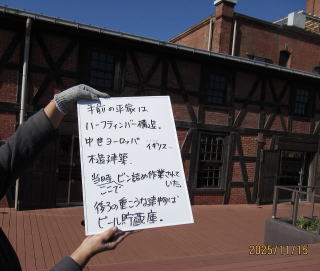 手前の平家は
ハーフティンバー構造。
中世ヨーロッパ イギリス
木造建築
当時、ビン詰め作業されて
ここで いた。
後ろの重こうな建物は
ビール貯蔵庫。
2025/11/15